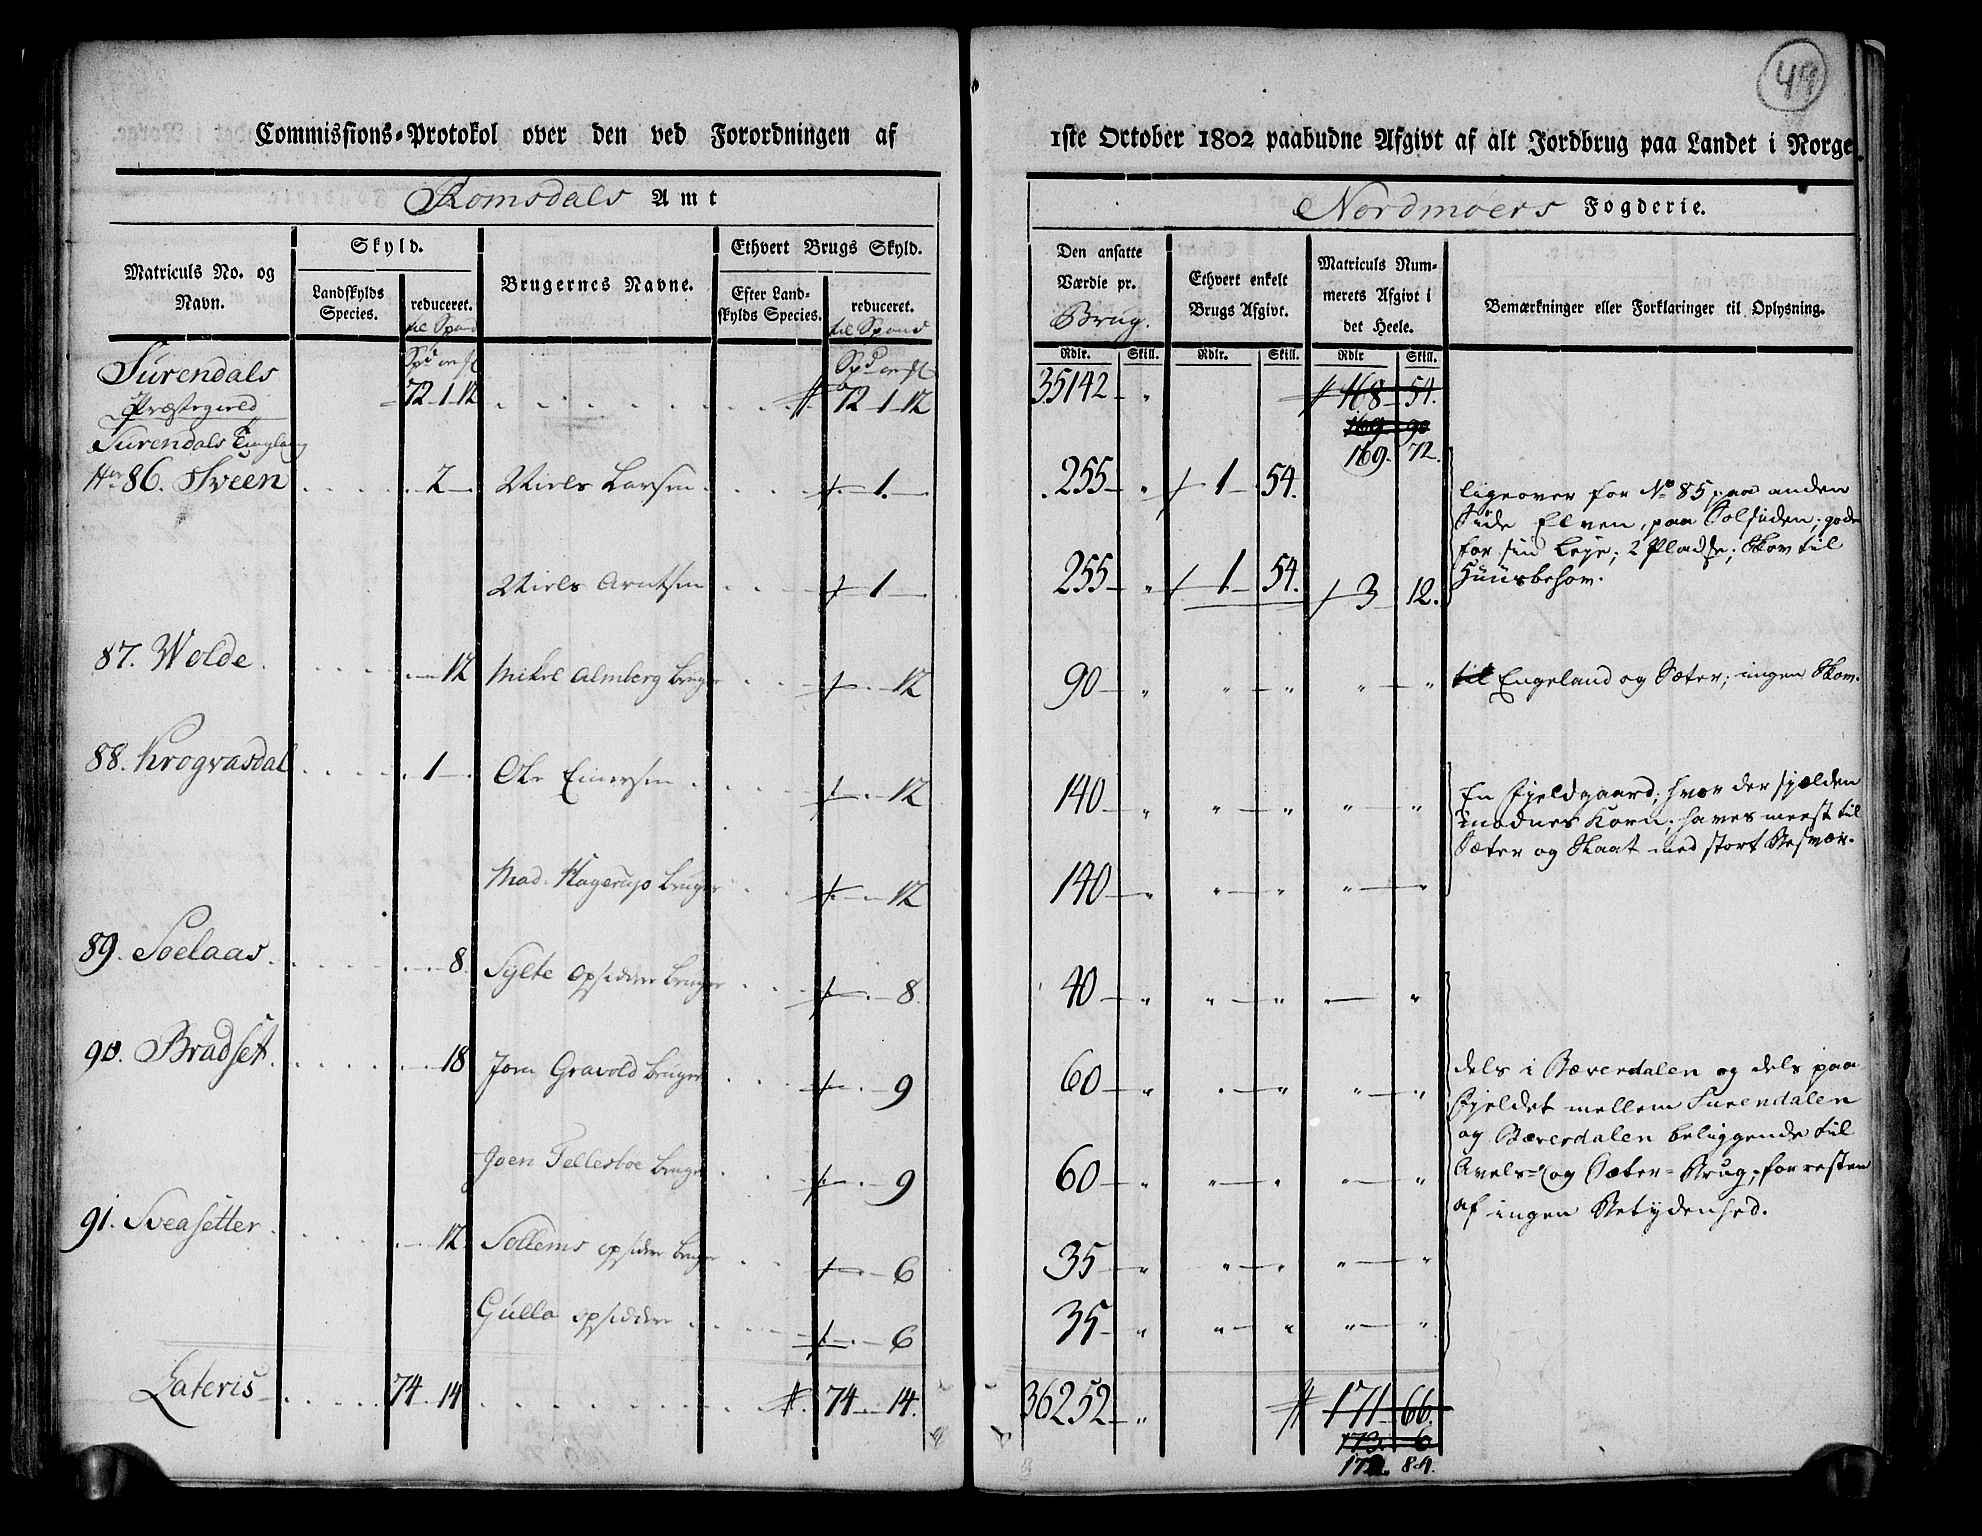 49
Commissions=Protokol over den ved Forordningen af
1ste October 1802 paabudne Afgivt af alt Jordbrug paa Landet i Norge.
Romsdals Amt
Nordmøers Fogderie.
Matriculs No. og Navn.
Skyld.
Landskylds Species.
reduceret.
til Spand
Brugernes Navne.
Ethvert Brugs Skyld.
Efter Landskylds Species.
reduceret.
til Spand
Den ansatte Værdie pr.
Brug.
Ethvert enkelt Brugs Afgivt.
Matriculs Nummerets Afgivt i det Heele.
Bemærkninger eller Forklaringer til Oplysning.
Rdlr. Skill. Rdlr. Skill. Rdlr Skill.
Surendals 72 1 12 72 1 12 35142 " 168 54.
Præstegield 169 90
Surendals Tinglaug 169. 72.
86. Sveen 2 Niels Larsen 1. 255 " 1 54.
ligeover for No 85 paa anden
Side Elven, paa Solsiden; gode
for sin Leje; 2 Pladse; Skov til
Huusbehov.
Niels Arntsen 1 255 " 1 54. 3 12.
87. Wolde 12 Mikel Almberg bruger 12 90 " " " " "
til Engeland og Sæter; ingen Skov.
88. Krogvasdal 1 Ole Einersen 12 140 " " " " "
En Fjeldgaard, hvor der sjælden
modnes Korn; haves meest til
Sæter og Slaat med stort Besvær.
Mad. Hagerup bruger 12 140 " " " " "
89. Soelaas 8 Sylte opsidder bruger 8 40 " " " "
90. Bradset 18 Joen Gravold bruger 9 60 " " " " "
dels i Bæverdalen og dels paa
Fjeldet mellem Surendalen
og Bæverdalen beliggende til
Avels- og Sæter-Brug; forresten
af ingen Betydenhed.
Joen Tellesboe bruger 9 60 " " " " "
91. Sveasetter 12 Sollems opsidder bruger 6 35 " " " " "
Gulla opsiddere 6 35 " " " " "
Lateris 74 14 74 14. 36252 " 171 66.
173. 6
172. 84.